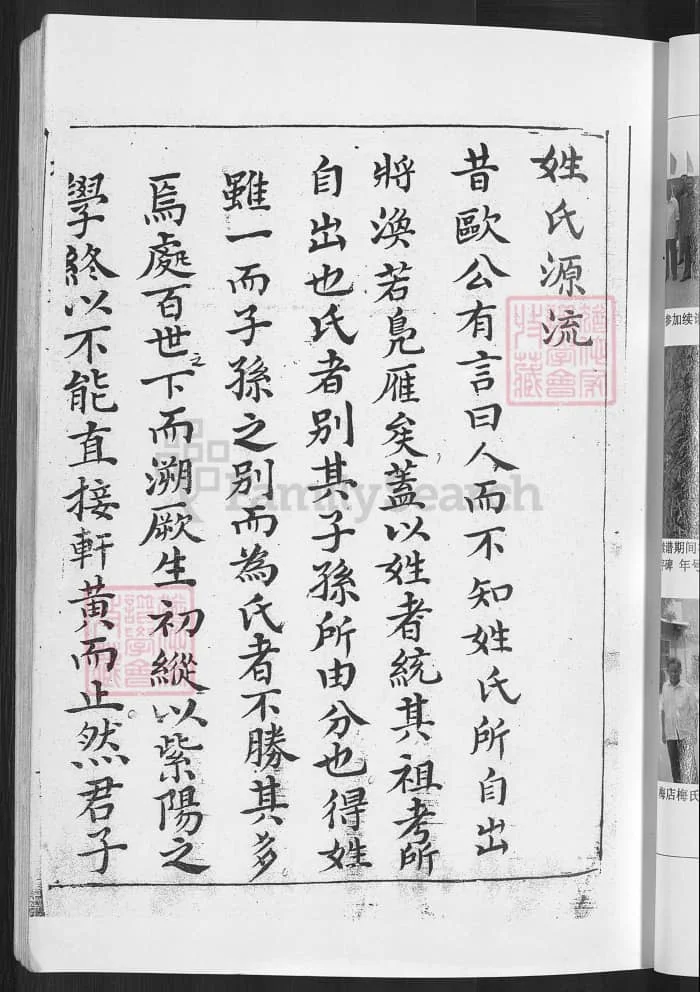 姓氏源流
昔歐公有言曰人而不知姓氏所自出
將渙若鳧雁矣蓋以姓者統其祖考所
自出也氏者別其子孫所由分也得姓
雖一而子孫之別而為氏者不勝其多
焉處百世之下而溯厥生初縱以紫陽之
學終以不能直接軒黃而止然君子
FamilySearch
参加续
谱期间
碑 年号
梅店梅氏